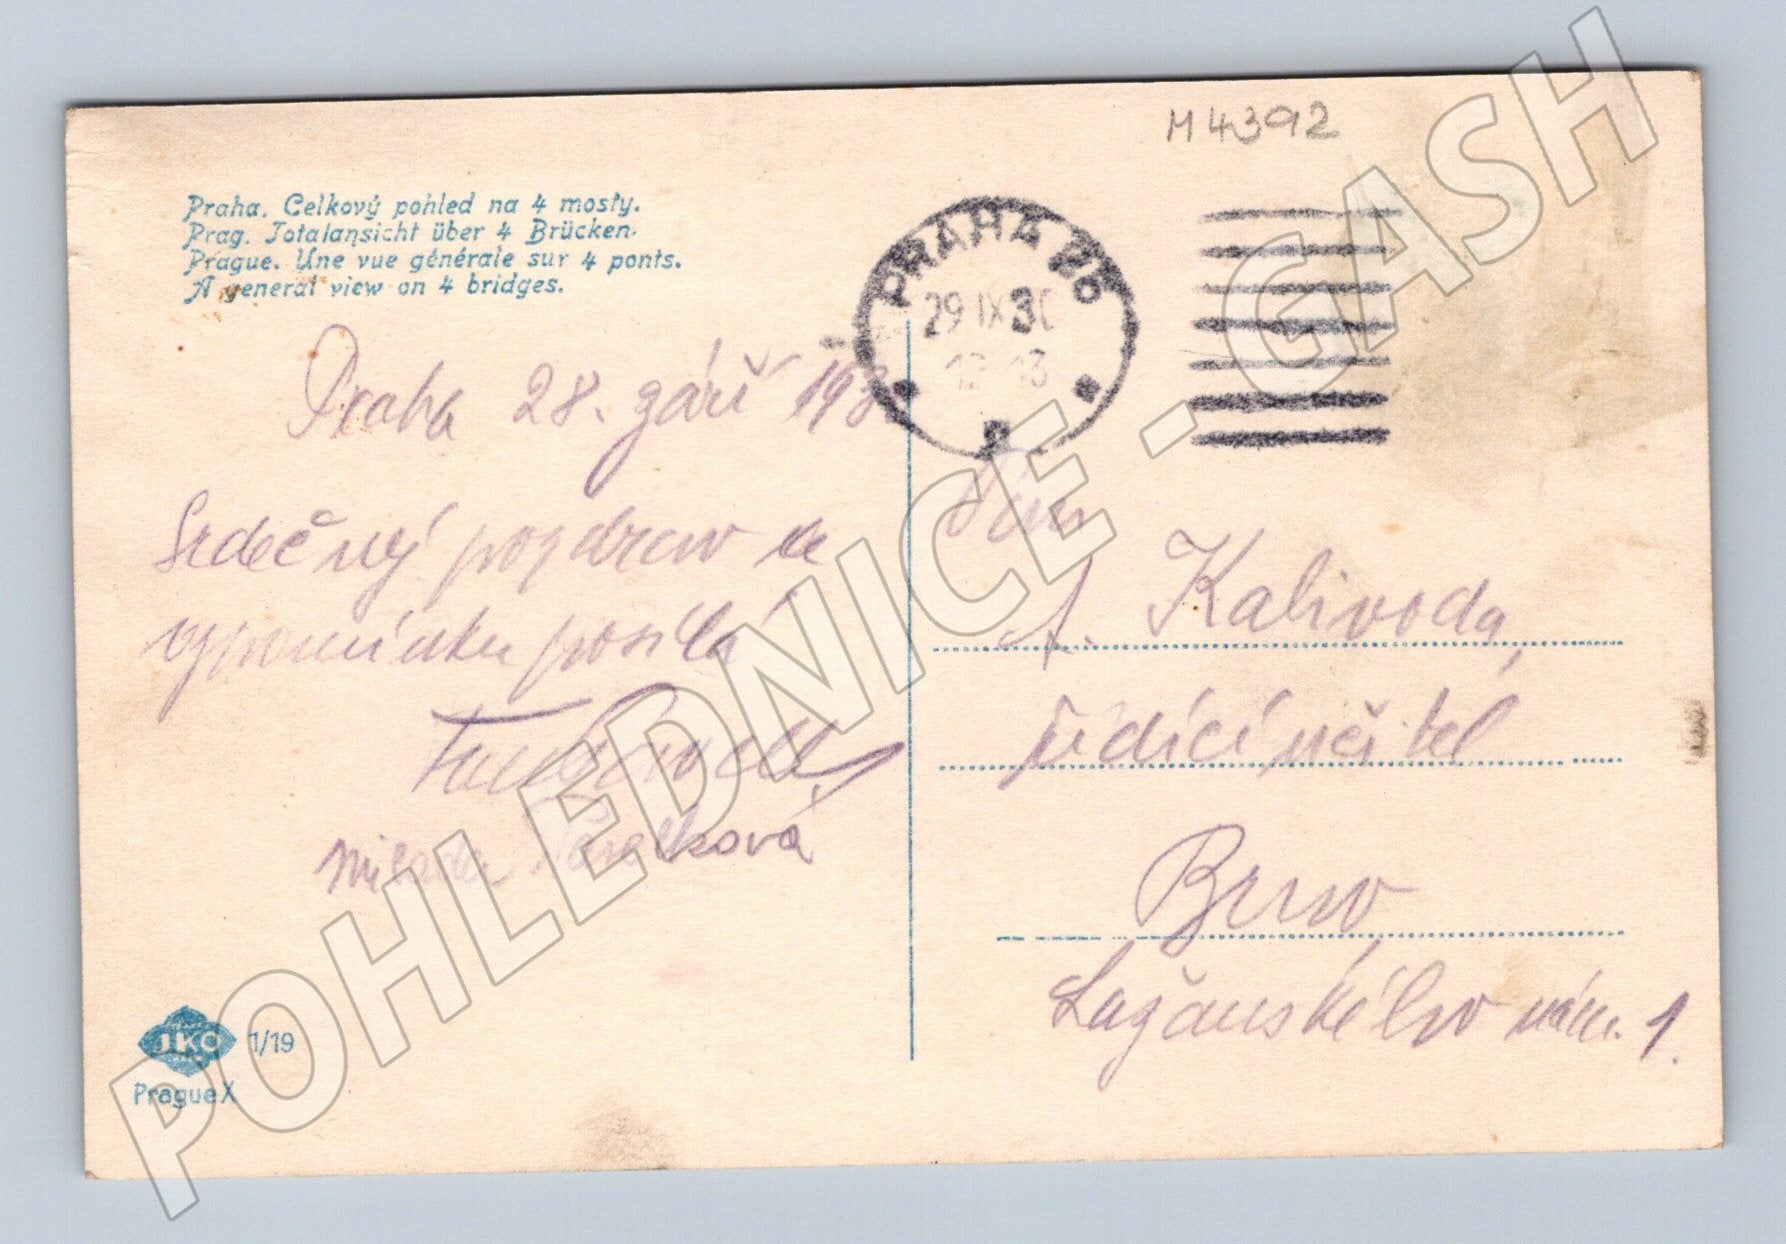 M4392
Praha. Celkový pohled na 4 mosty.
Prag. Totalansicht über 4 Brücken.
Prague. Une vue générale sur 4 ponts.
A general view on 4 bridges.
PRAHA
29 IX 30
Praha 28. září 193
Srdečný pozdrav a
vzpomínku posílá
Milada
A. Kalivoda,
řídící učitel
Brno
Lažanského nám. 1.
JKO 1/19
Prague X
POHLEDNICE - GASH